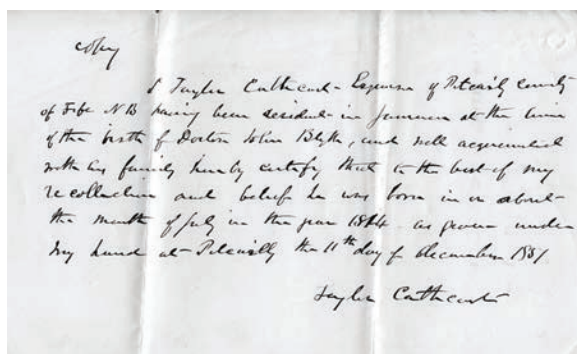 Copy
I Taylor Cathcart Esquire of Pitcairly County
of Fife NB having been resident in Jamaica at the time
of the birth of Doctor John Blyth, and well acquainted
with his family hereby certify that to the best of my
recollection and belief he was born in or about
the month of July in the year 1814 as given under
my hand at Pitcairly the 11th day of December 1851
Taylor Cathcart